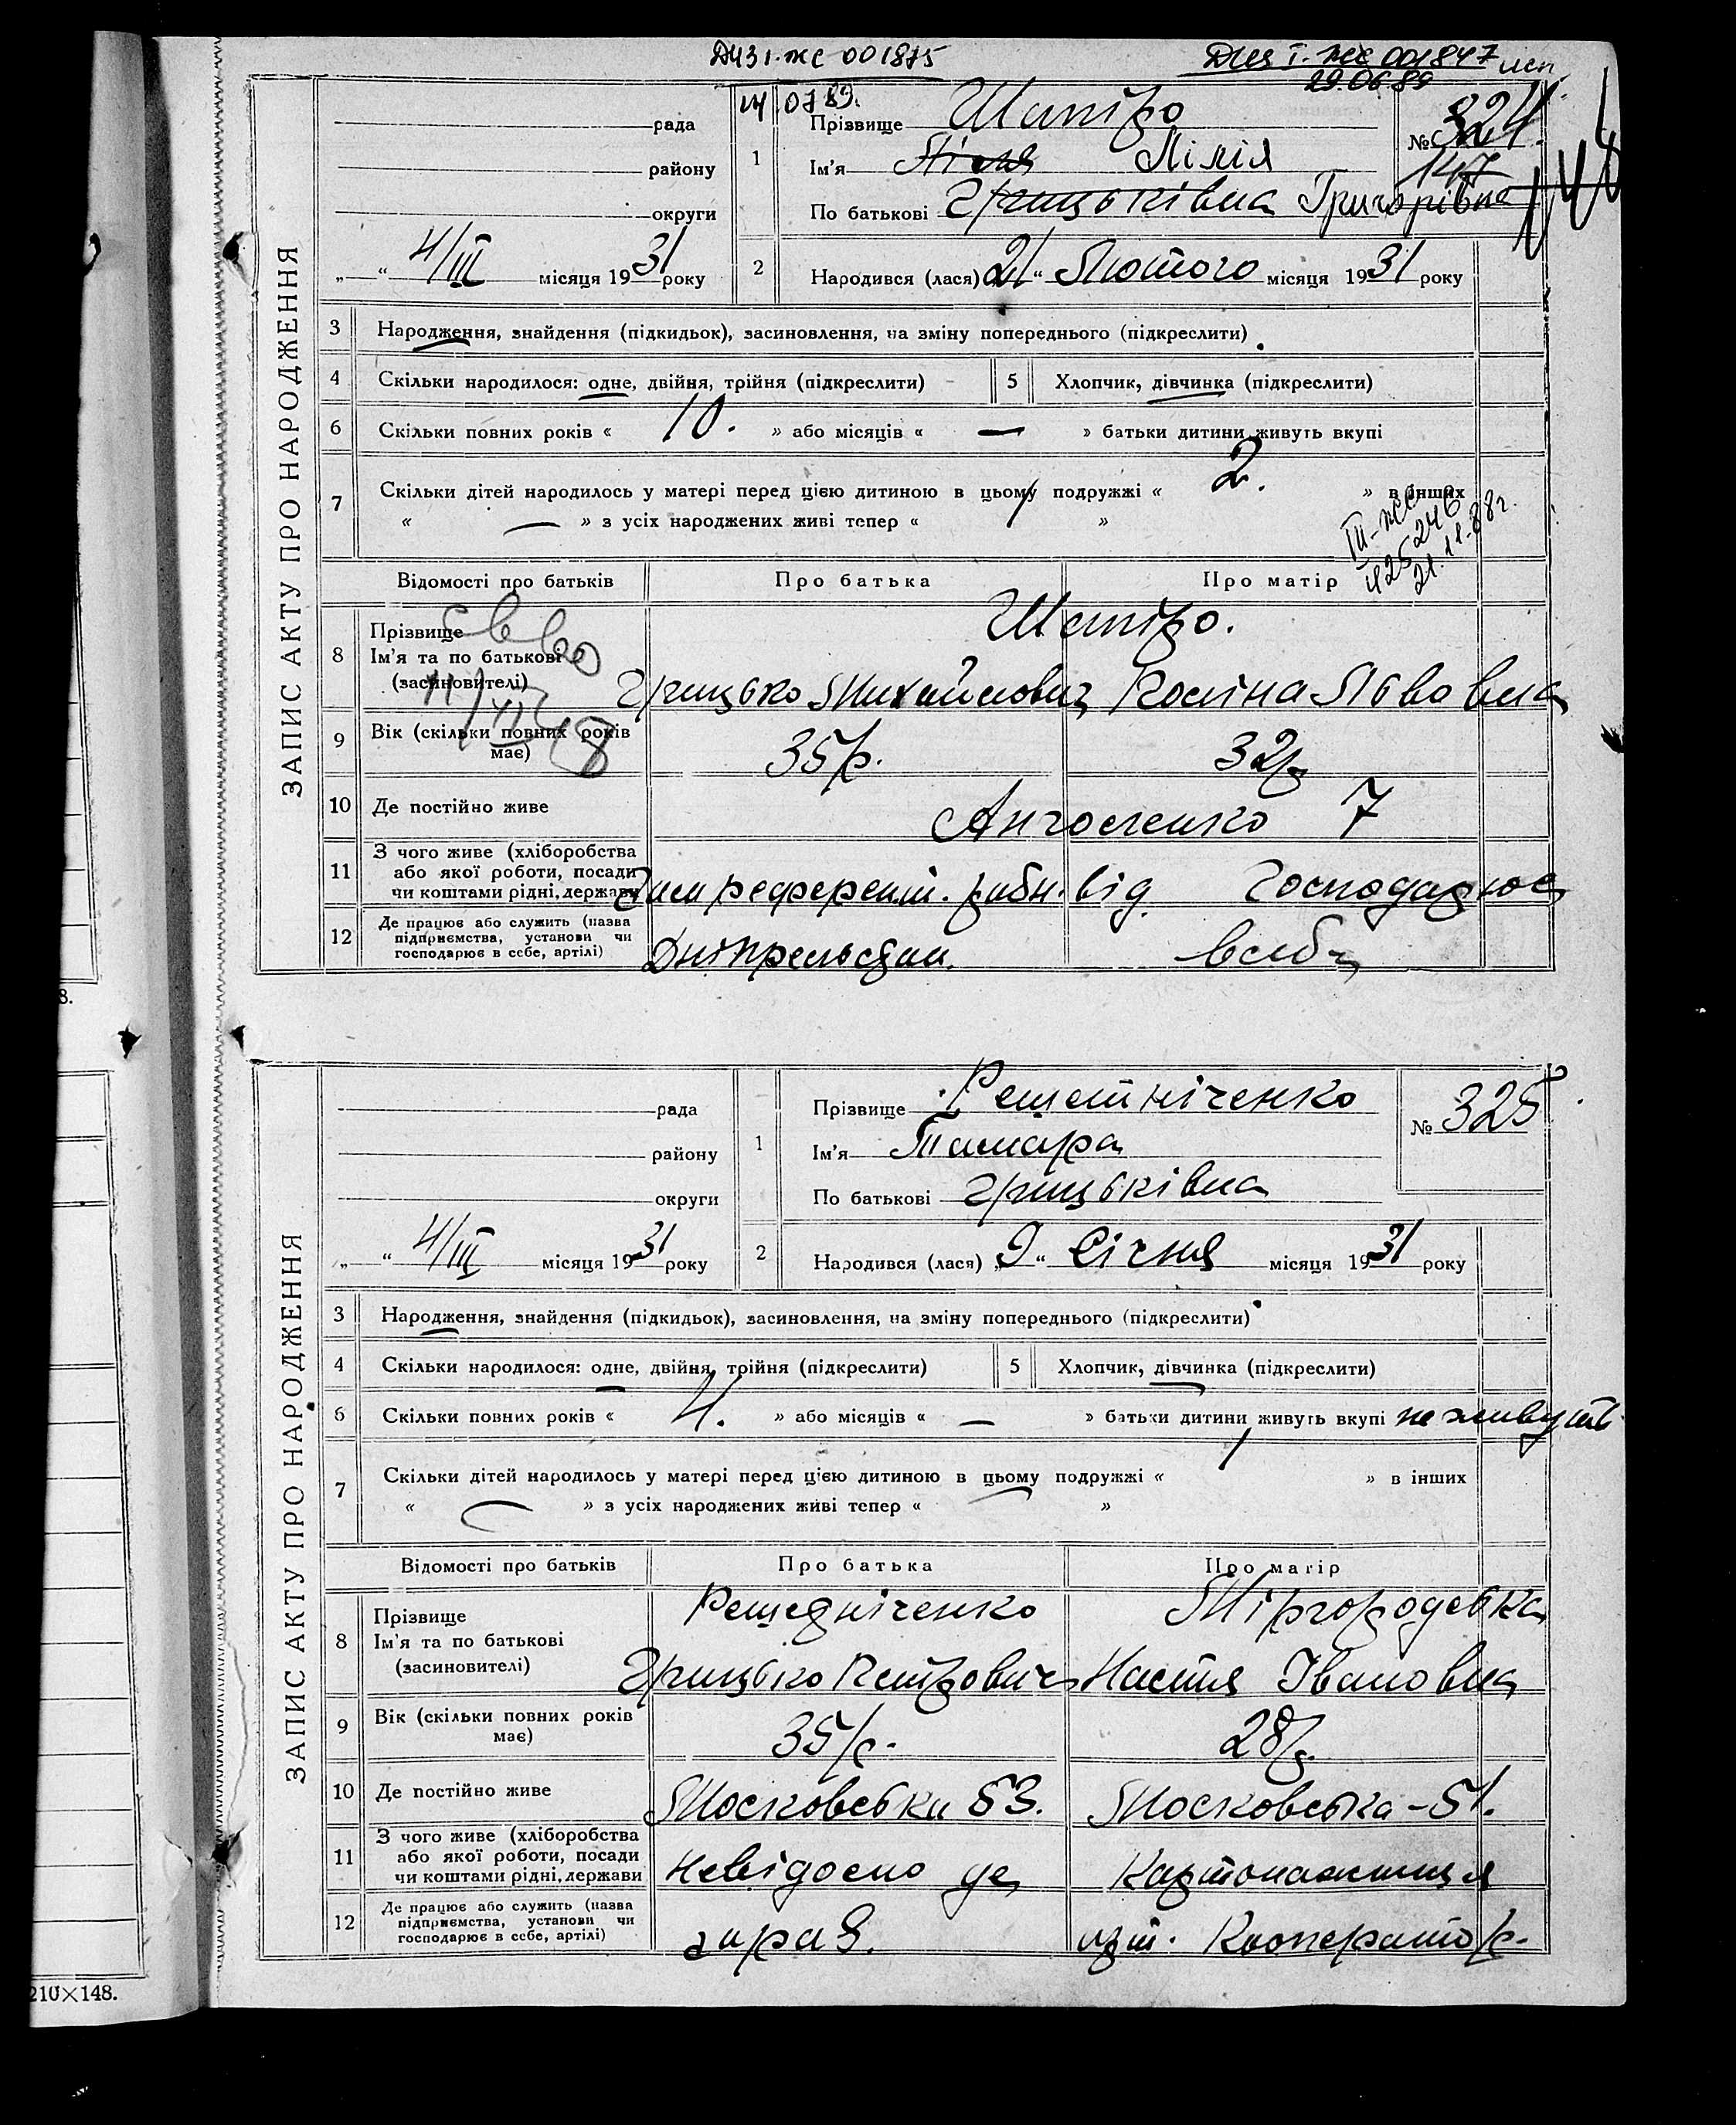 001875
001847
29.06.89
ЗАПИС АКТУ ПРО НАРОДЖЕННЯ
рада
району
округи
„ “ 4/III місяця 1931 року
1 Прізвище Шапіро
Ім'я Ліля Лілія
По батькові Грицьківна Григорівна
№ 324
147
2 Народився (лася) 21 “ Лютого місяця 1931 року
3 Народження, знайдення (підкидьок), засиновлення, на зміну попереднього (підкреслити)
4 Скільки народилося: одне, двійня, трійня (підкреслити) 5 Хлопчик, дівчинка (підкреслити)
6 Скільки повних років « 10. » або місяців « — » батьки дитини живуть вкупі
7 Скільки дітей народилось у матері перед цією дитиною в цьому подружжі « 2. » в інших
« — » з усіх народжених живі тепер « »
21.11.88г.
Відомості про батьків Про батька Про матір
8 Прізвище
Ім'я та по батькові
(засиновителі)
Шапіро.
Грицько Михайлович Львовна
9 Вік (скільки повних років
має)
35/р. 32/р
10 Де постійно живе 7
11 З чого живе (хліборобства
або якої роботи, посади
чи коштами рідні, держави
від. Господарює
12 Де працює або служить (назва
підприємства, установи чи
господарює в себе, артілі)
ЗАПИС АКТУ ПРО НАРОДЖЕННЯ
рада
району
округи
„ “ 4/III місяця 1931 року
1 Прізвище Решетніченко
Ім'я Тамара
По батькові Грицьківна
№ 325
2 Народився (лася) „9“ Січня місяця 1931 року
3 Народження, знайдення (підкидьок), засиновлення, на зміну попереднього (підкреслити)
4 Скільки народилося: одне, двійня, трійня (підкреслити) 5 Хлопчик, дівчинка (підкреслити)
6 Скільки повних років « 4. » або місяців « — » батьки дитини живуть вкупі не живуть
7 Скільки дітей народилось у матері перед цією дитиною в цьому подружжі « 1 » в інших
« — » з усіх народжених живі тепер « »
Відомості про батьків Про батька Про матір
8 Прізвище
Ім'я та по батькові
(засиновителі)
Решедніченко Міргородська
Грицько Петрович Настя Івановна
9 Вік (скільки повних років
має)
35/р. 28/р.
10 Де постійно живе Московська 53. Московська – 51.
11 З чого живе (хліборобства
або якої роботи, посади
чи коштами рідні, держави
Невідомо де Картонажниця
12 Де працює або служить (назва
підприємства, установи чи
господарює в себе, артілі)
зараз. Кооператор.
8.
210×148.